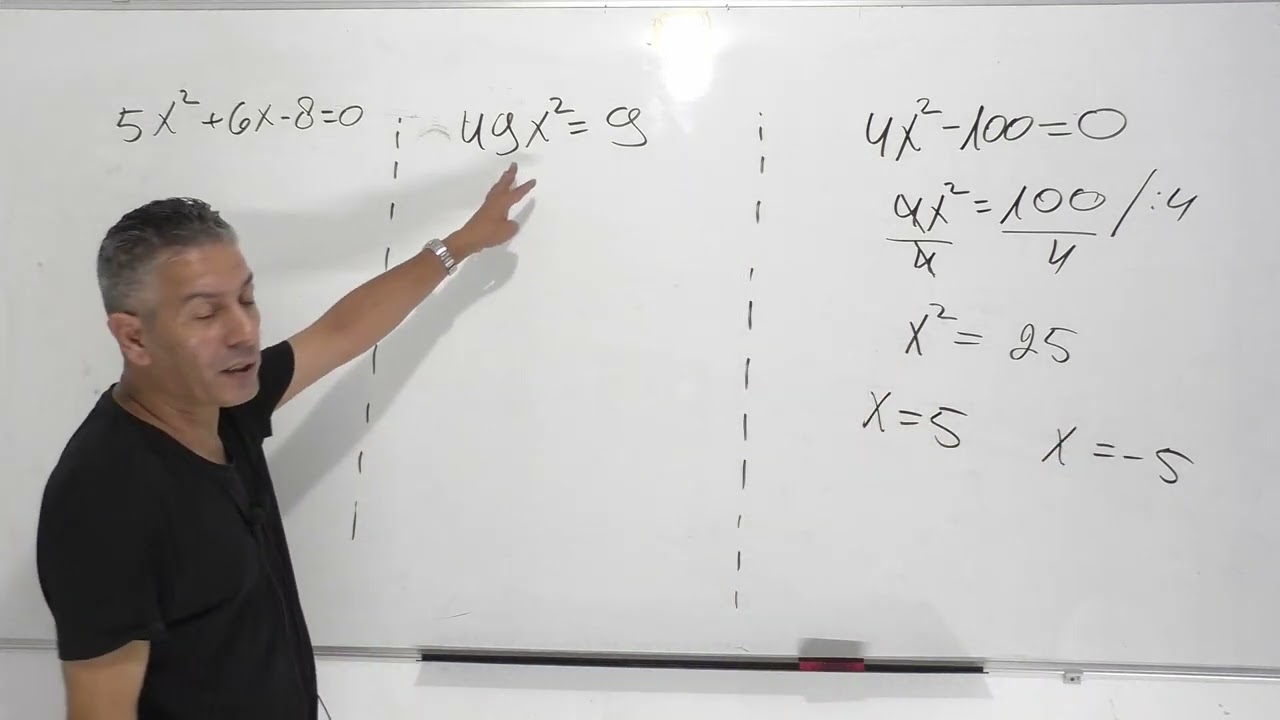 5x²+6x-8=0
49x²=9
4x²-100=0
4x²/4=100/4 /:4
x²=25
x=5 x=-5